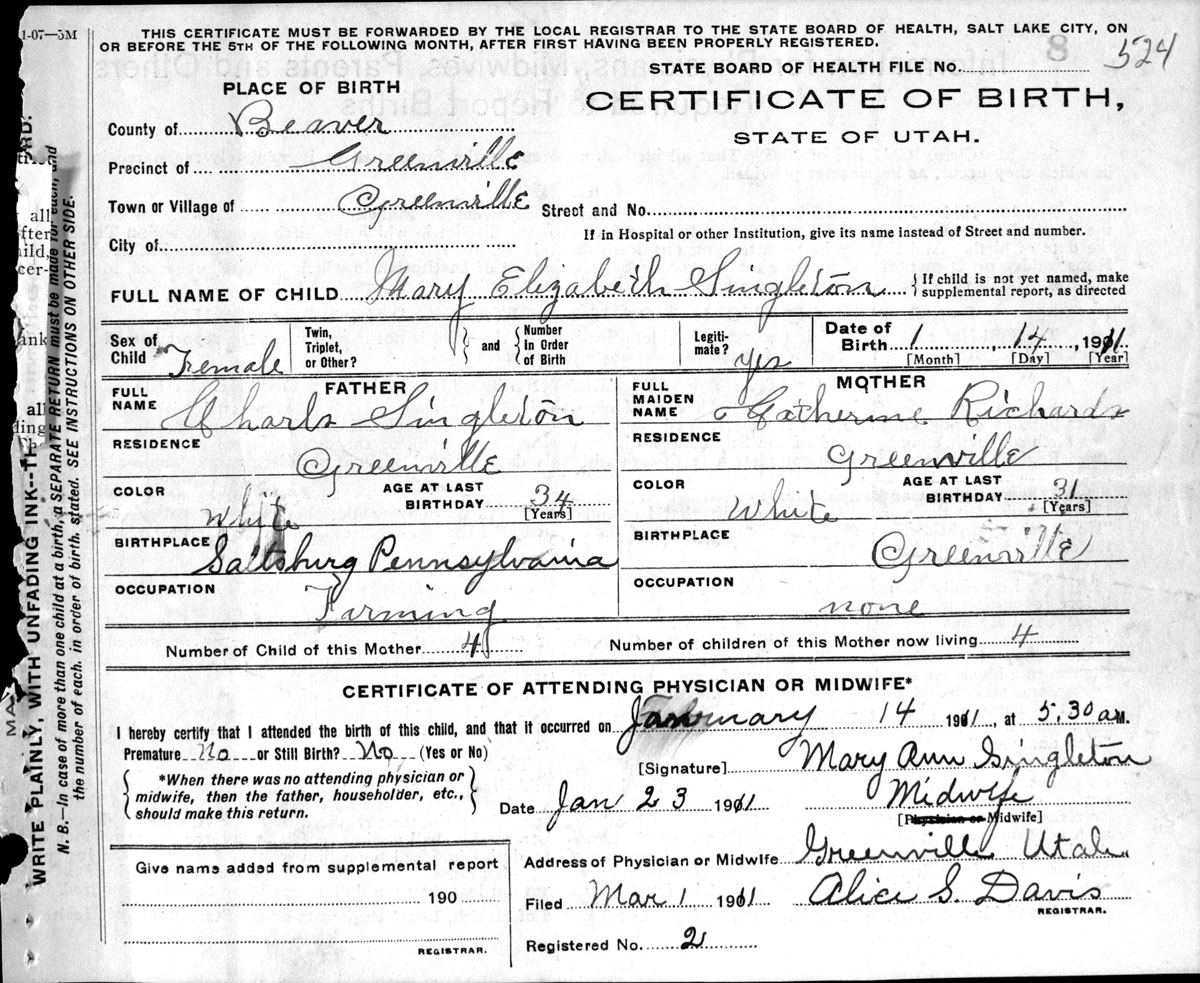 1-07—5M
THIS CERTIFICATE MUST BE FORWARDED BY THE LOCAL REGISTRAR TO THE STATE BOARD OF HEALTH, SALT LAKE CITY, ON
OR BEFORE THE 5TH OF THE FOLLOWING MONTH, AFTER FIRST HAVING BEEN PROPERLY REGISTERED.
STATE BOARD OF HEALTH FILE NO. 524
PLACE OF BIRTH
CERTIFICATE OF BIRTH,
STATE OF UTAH.
County of Beaver
Precinct of Greenville
Town or Village of Greenville
Street and No.
City of
If in Hospital or other Institution, give its name instead of Street and number.
FULL NAME OF CHILD Mary Elizabeth Singleton { If child is not yet named, make
supplemental report, as directed
Sex of Child Female
Twin, Triplet, or Other? } and { Number in Order of Birth
Legiti-mate? yes
Date of Birth 1 14, 1911
[Month] [Day] [Year]
FATHER
FULL NAME Charls Singleton
RESIDENCE Greenville
COLOR White
AGE AT LAST BIRTHDAY 34 [Years]
BIRTHPLACE Saltsburg Pennsylvania
OCCUPATION Farming
MOTHER
FULL MAIDEN NAME Catherine Richards
RESIDENCE Greenville
COLOR White
AGE AT LAST BIRTHDAY 31 [Years]
BIRTHPLACE Greenville
OCCUPATION none
Number of Child of this Mother 4
Number of children of this Mother now living 4
CERTIFICATE OF ATTENDING PHYSICIAN OR MIDWIFE*
I hereby certify that I attended the birth of this child, and that it occurred on January 14 1911, at 5.30 a M.
Premature No or Still Birth? No (Yes or No)
[Signature] Mary Ann Singleton
{ *When there was no attending physician or
midwife, then the father, householder, etc.,
should make this return. }
Date Jan 23 1911
Midwife
[Physician or Midwife]
Address of Physician or Midwife Greenville Utah
Filed Mar 1 1911 Alice S. Davis
REGISTRAR.
Registered No. 2
Give name added from supplemental report
190
REGISTRAR.
WRITE PLAINLY, WITH UNFADING INK--
N. B.—In case of more than one child at a birth, a SEPARATE RETURN must be made for each, and
the number of each, in order of birth, stated. SEE INSTRUCTIONS ON OTHER SIDE.